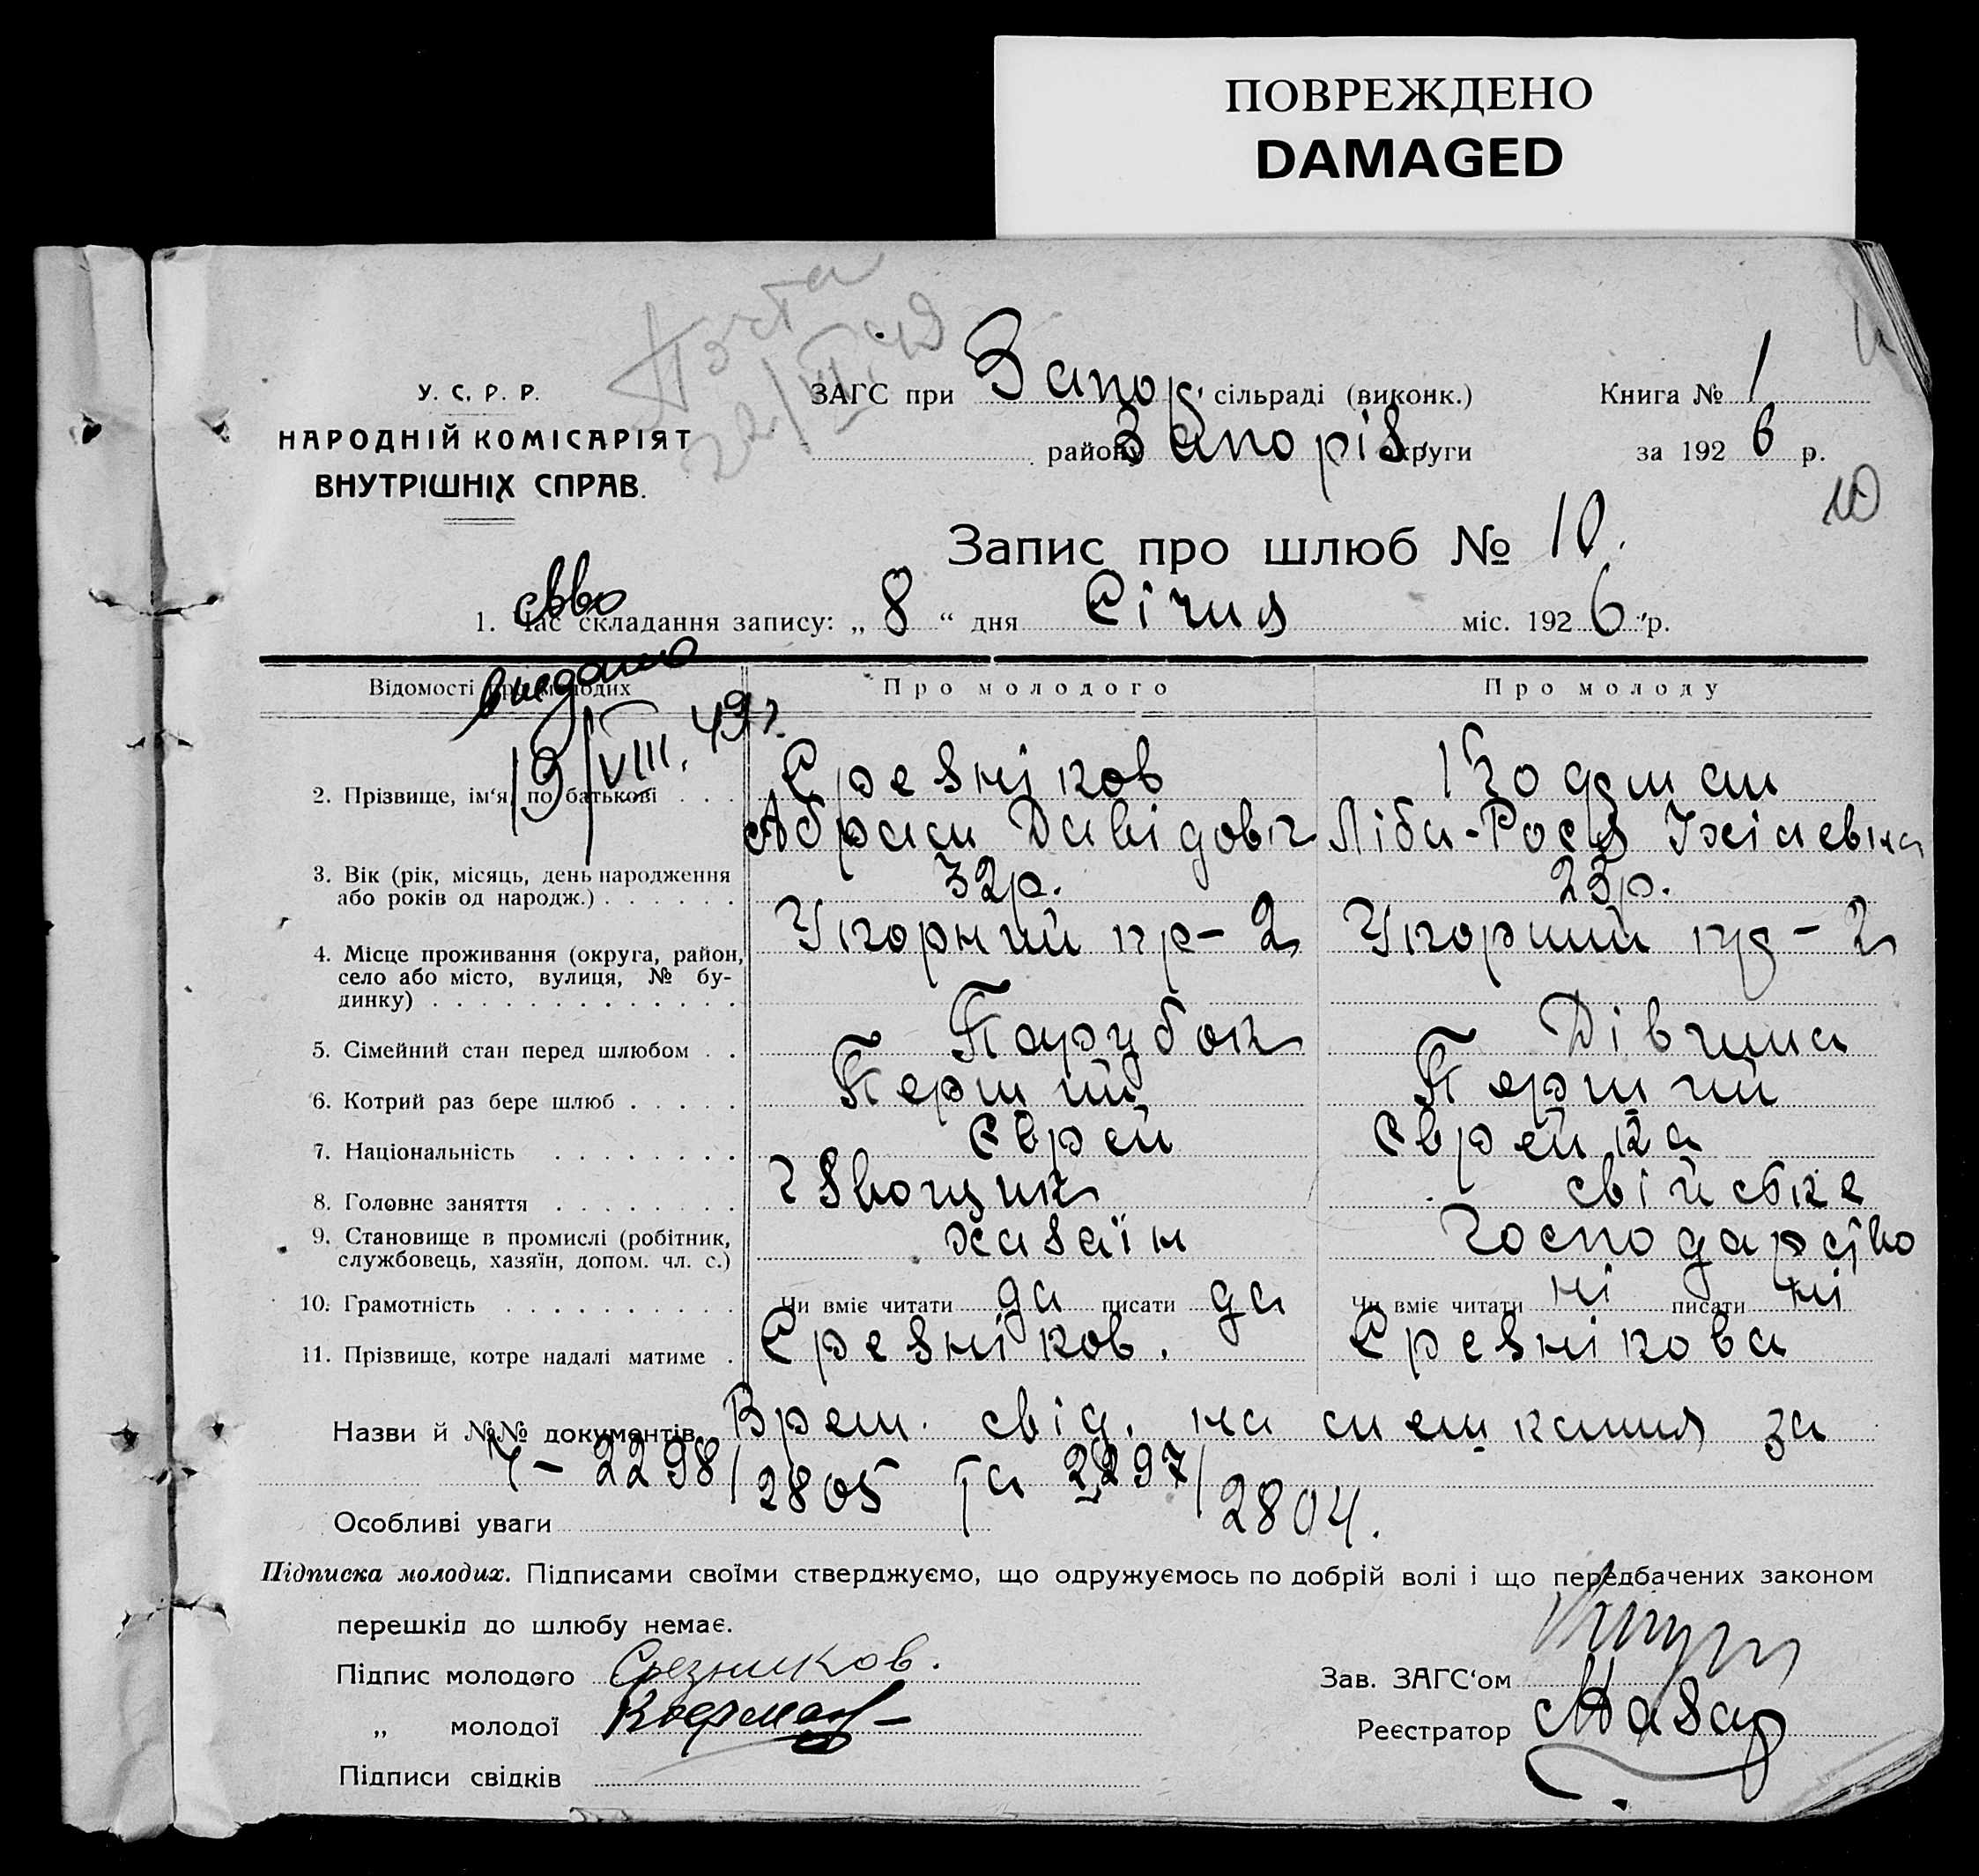 ПОВРЕЖДЕНО
DAMAGED
У. С. Р. Р.
НАРОДНІЙ КОМІСАРІЯТ
ВНУТРІШНІХ СПРАВ.
ЗАГС при Запор. сільраді (виконк.)
Книга № 1
району Запоріз. округи
за 1926 р.
10
Запис про шлюб № 10.
1. Час складання запису: „ 8 “ дня Січня міс. 1926 р.
с-во
видано
19/VIII. 49 г.
Відомості про молодих
Про молодого
Про молоду
2. Прізвище, ім‘я, по батькові . . .
Срезніков
Кодман
Абрам Давідовіч
Ліба-Рося
3. Вік (рік, місяць, день народження
або років од народж.) . . . . . .
32р.
23р.
4. Місце проживання (округа, район,
село або місто, вулиця, № бу-
динку) . . . . . . . . . . . . .
Упорний пр-2
Упорний пр-2
5. Сімейний стан перед шлюбом . .
Парубок
Дівчина
6. Котрий раз бере шлюб . . . . .
Перший
Перший
7. Національність . . . . . . . .
Єврей
Єврейка
8. Головне заняття . . . . . . . .
Ізвощик
свійське
9. Становище в промислі (робітник,
службовець, хазяїн, допом. чл. с.)
хазаїн
господарство
10. Грамотність . . . . . . . . . .
Чи вміє читати да писати да
Чи вміє читати ні писати ні
11. Прізвище, котре надалі матиме .
Срезніков.
Срезнікова
Назви й №№ документів Врем. свід. на смешкання за
Ч-2298/2805 та 2297/2804.
Особливі уваги
Підписка молодих. Підписами своїми стверджуємо, що одружуємось по добрій волі і що передбачених законом
перешкід до шлюбу немає.
Підпис молодого Срезников.
Зав. ЗАГС‘ом
„ молодої
Реєстратор
Підписи свідків